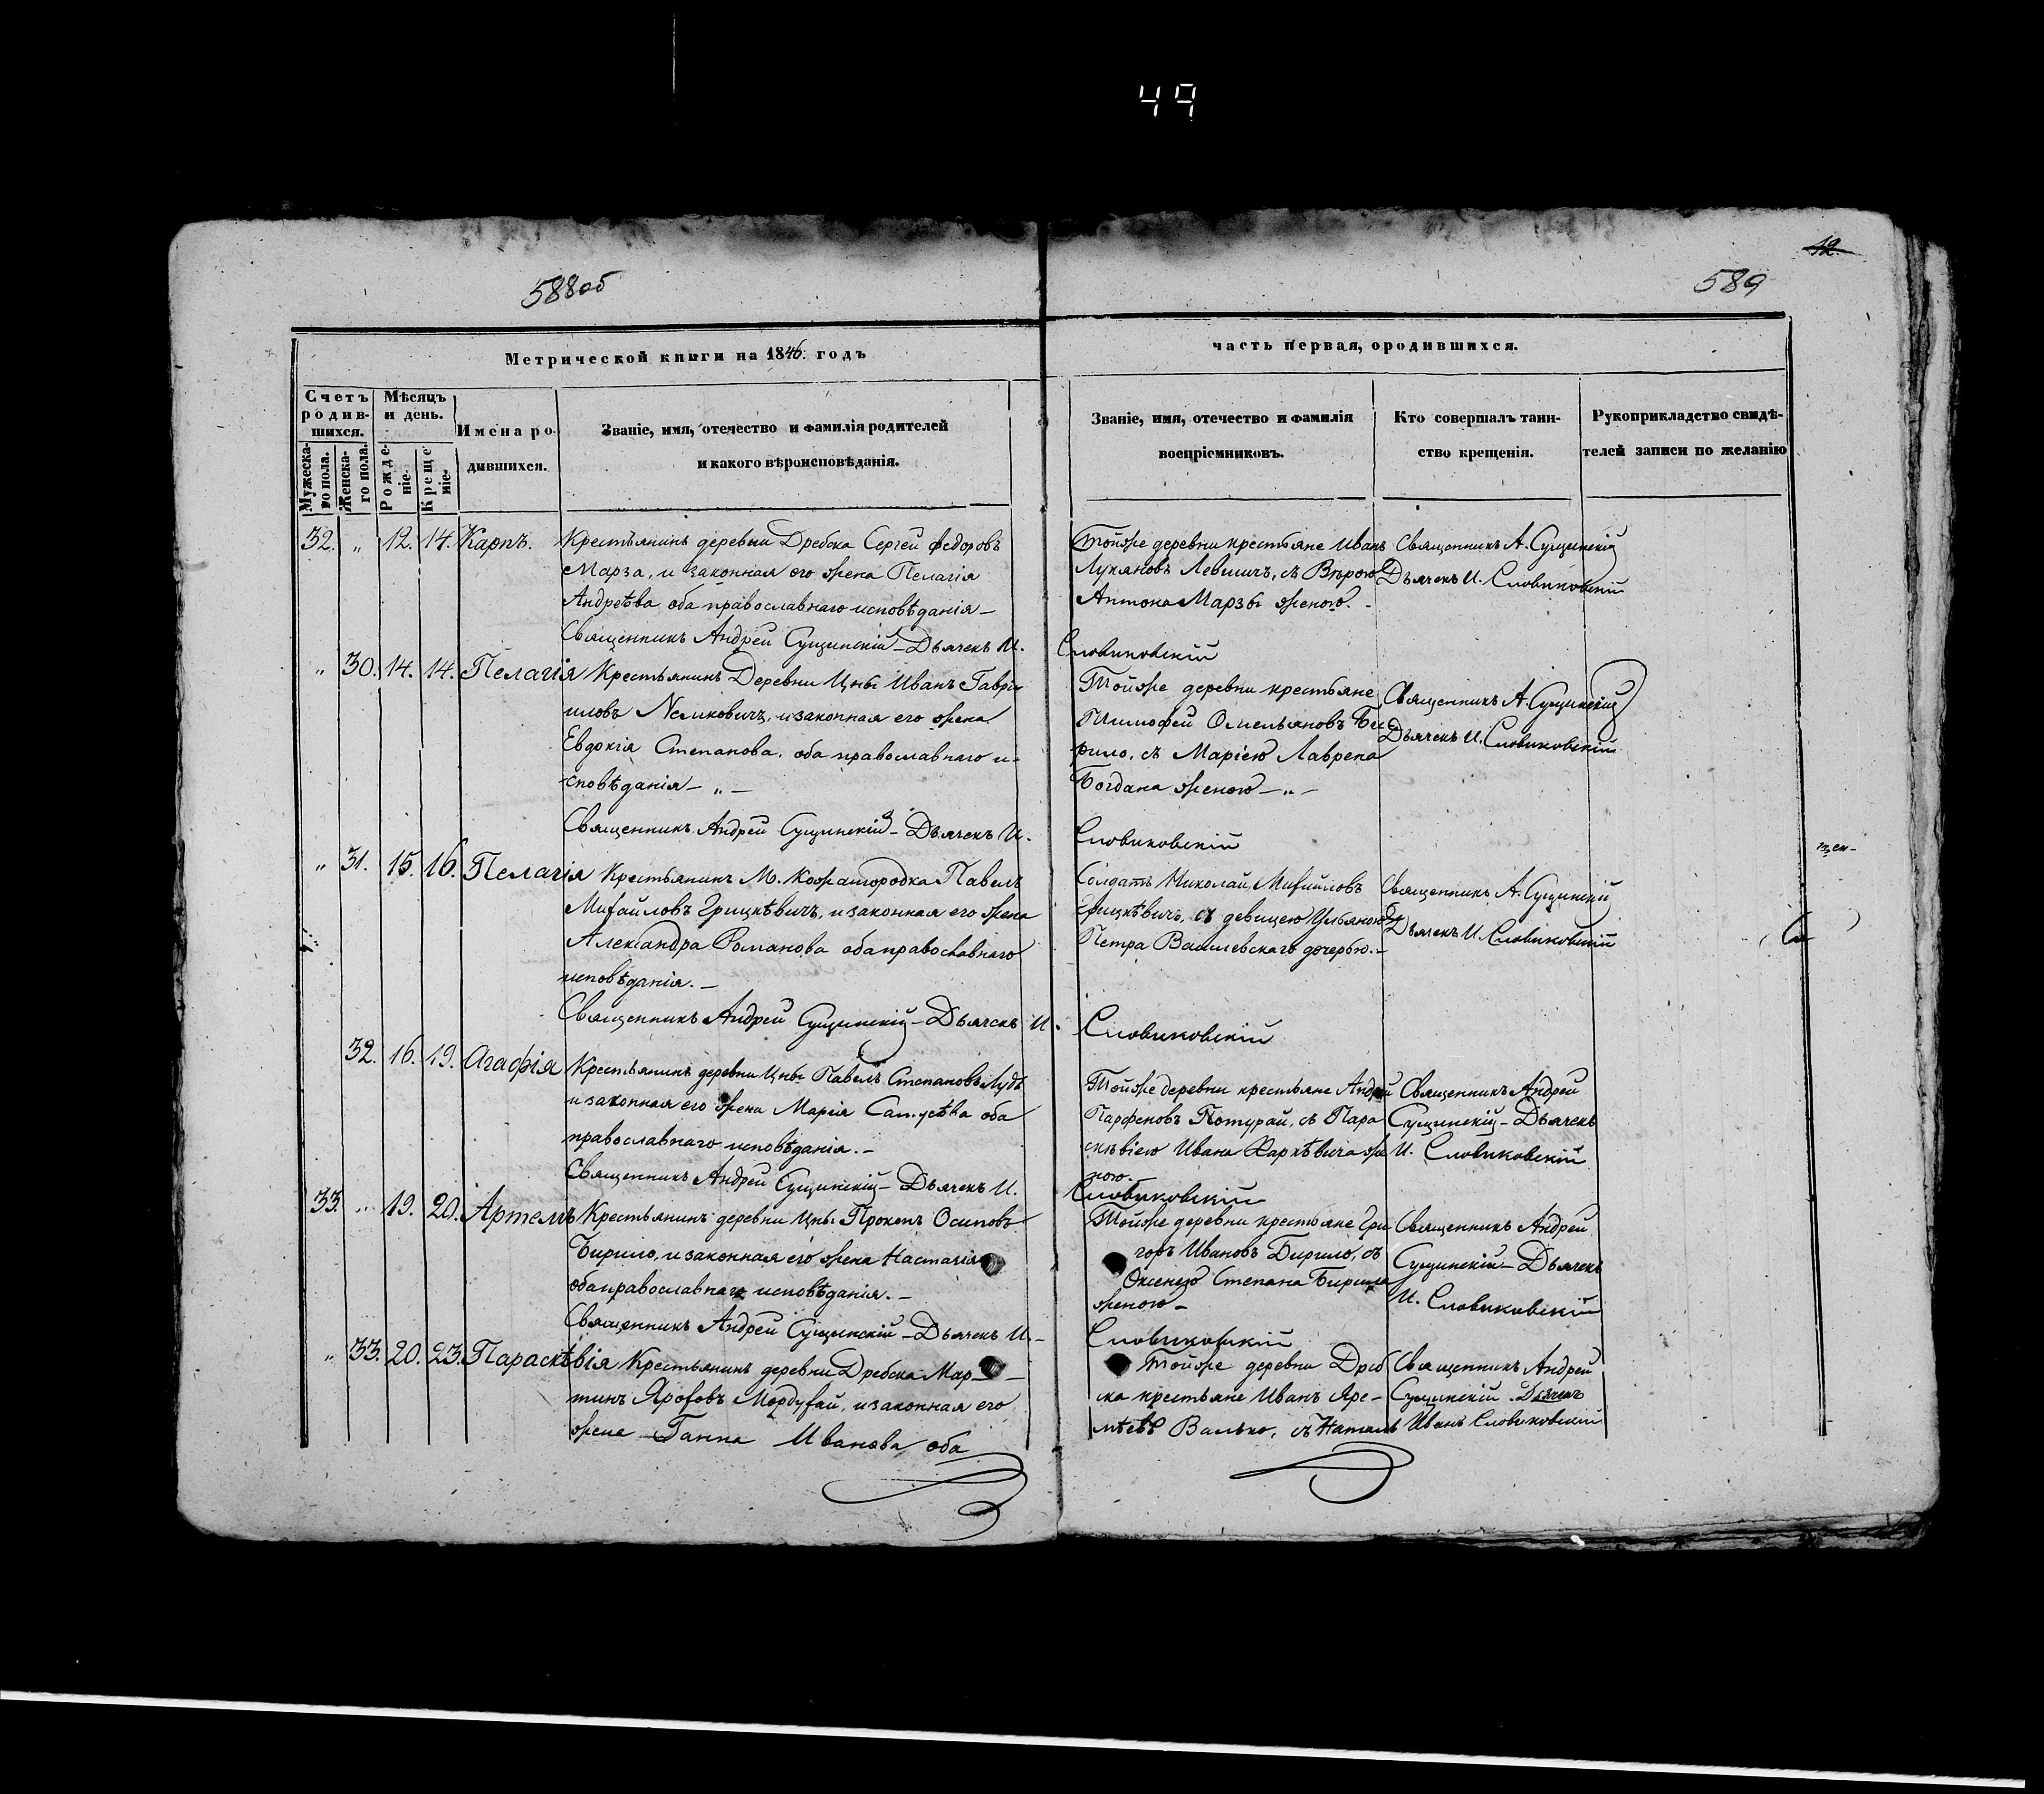 49
12.
588об
589
Метрической книги на 1846. годъ
часть первая, ородившихся.
Счетъ родив-шихся.
Мужеска-го пола.
Женска-го пола.
Мѣсяцъ и день.
Рожде-ніе.
Креще-ніе.
Имена ро-
дившихся.
Званіе, имя, отечество и фамилія родителей
и какого вѣроисповѣданія.
Званіе, имя, отечество и фамилія
воспріемниковъ.
Кто совершалъ таин-
ство крещенія.
Рукоприкладство свидѣ-
телей записи по желанію
32. „ 12. 14. Карпъ.
Крестьянинъ деревни Дребска Сергей Федоровъ
Марза, и законная его жена Пелагія
Андреѣва оба православнаго исповѣданія —
Священникъ Андрей Сущинскій — Дьячекъ И.
Тойже деревни крестьяне Иванъ
Лукяновъ Левшичъ, съ Вѣрою
Антона Марзы женою. -
Словиковскій
Священникъ А. Сущинскій
Дьячекъ И. Словиковскій
„ 30. 14. 14. Пелагія
Крестьянинъ Деревни Цны Иванъ Гаврі-
иловъ Неликовичъ, и законная его жена
Евдокія Степанова, оба православнаго и-
сповѣданія — „ —
Священникъ Андрей Сущинскій — Дьячекъ И.
Тойже деревни крестьяне
Тимофей Омельяновъ Би-
рило, съ Маріею Лаврена
Богдана женою — „ —
Словиковскій
Священникъ А. Сущинскій
Дьячекъ И. Словиковскій
„ 31. 15. 16. Пелагія
Крестьянинъ М. Кожангородка Павелъ
Михайловъ Грицкѣвичъ, и законная его жена
Александра Романова оба православнаго
исповѣданія. —
Священникъ Андрей Сущинскій — Дьячекъ И.
Солдатъ Николай Михайловъ
Грицкѣвичъ, съ девицею Ульяною
Петра Василевскаго дочерью. -
Словиковскій
Священникъ А. Сущинскій
Дьячекъ И. Словиковскій
32. 16. 19. Агафія
Крестьянинъ деревни Цны Павелъ Степановъ
и законная его жена Марія оба
православнаго исповѣданія. —
Священникъ Андрей Сущинскій — Дьячекъ И.
Тойже деревни крестьяне Андрей
Парфеновъ Потурай, съ Пара
скѣвіею Ивана Харкѣвича же
ною.
Словиковскій
Священникъ Андрей
Сущинскій — Дьячекъ
И. Словиковскій
33. „ 19. 20. Артемъ
Крестьянинъ деревни Цны Прокопъ Осиповъ
Бирило, и законная его жена Настасія
оба православнаго исповѣданія. —
Священникъ Андрей Сущинскій — Дьячекъ И. —
Тойже деревни крестьяне Гри
горъ Ивановъ Бирило, съ
Оксенею Степана Бирила
женою —
Словиковскій
Священникъ Андрей
Сущинскій — Дьячекъ
И. Словиковскій
„ 33. 20. 23. Параскѣвія
Крестьянинъ деревни Дребска Мар —
тинъ Ярофовъ Мордухай, и законная его
жена Ганна Иванова оба
Тойже деревни Дреб
ска крестьяне Иванъ Яре-
мѣевъ Валько, съ
Священникъ Андрей
Сущинскій Дьячекъ
Иванъ Словиковскій